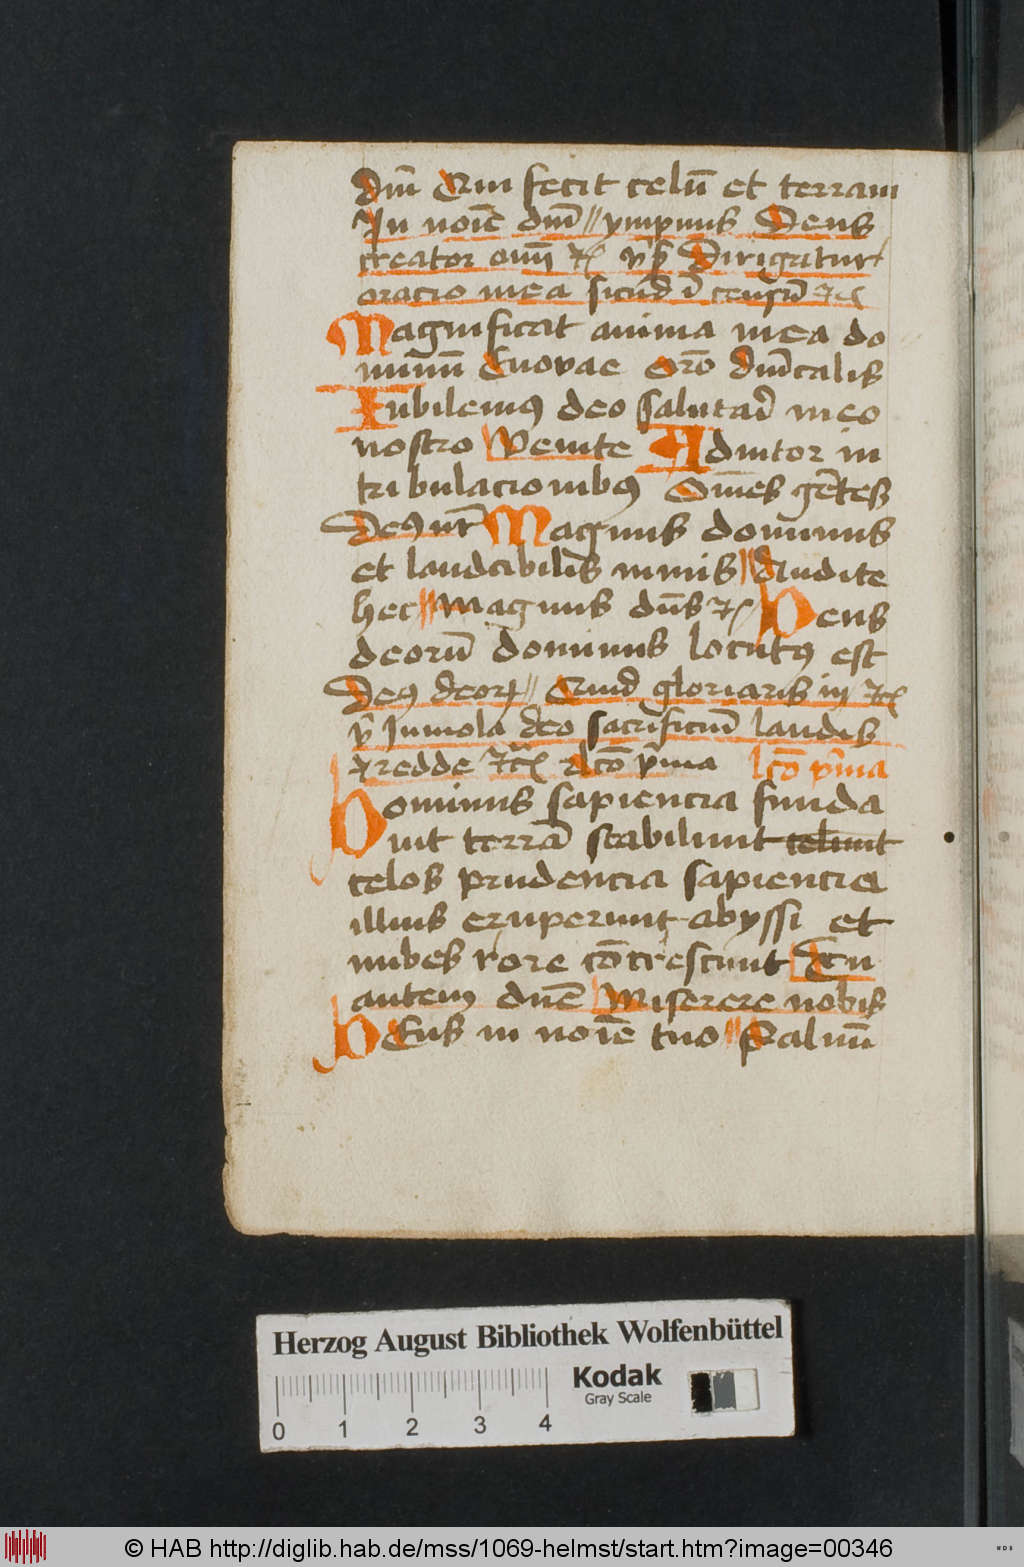 dn̄i Qui fecit celū et terram
In noīe dn̄i // ympnus Deus
creator oīm̄ rͨ v̾s Dirigatur
oracio mea sicud ī censū rͨ
Magnificat anima mea do
minum Euovae Orō dn̄icalis
Iubilemꝰ deo salutaī meo
nostro Venite Adiutor in
tribulacionibꝰ Om̄es gētes
Deꝰ nr̄ Magnus dominus
et laudabilis nimis // Audite
hec // Magnus dūs rͨ Deus
deorū dominus locutꝰ est
Deꝰ deorꝝ // Quid gloriaris in rͨ
v̾ Immola deo sacrificiū laudis
⁊ redde rͨ lc̄o p̄ma lc̄o p̄ma
Dominus sapiencia funda
uit terrā stabiliuit celuut
celos prudencia sapiencia
illius eruperunt abyssi et
nubes rore cōcrescunt Tu
autem dn̄e Miserere nobis
Deus in noīe tuo // Saluū
Herzog August Bibliothek Wolfenbüttel
Kodak
Gray Scale
0 1 2 3 4
© HAB http://diglib.hab.de/mss/1069-helmst/start.htm?image=00346